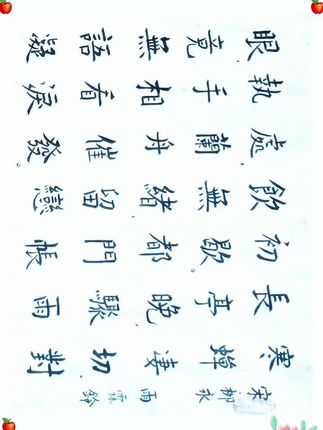 宋 柳永 雨霖鈴
寒蟬淒切對
長亭晚驟雨
初歇都門帳
飲無緒留戀
處蘭舟催發
執手相看淚
眼竟無語凝